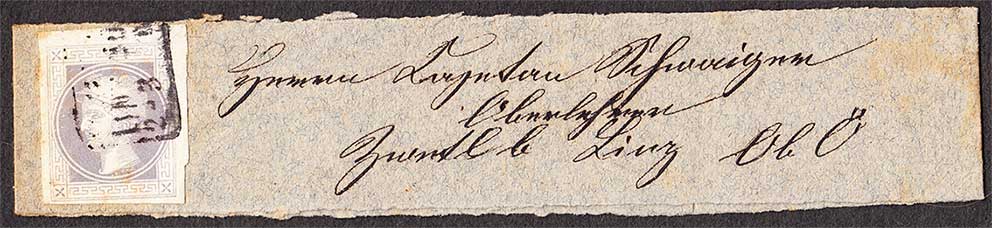 Herrn Cajetan Schwaiger
Oberlehrer
Zwettl b Linz Ob Ö